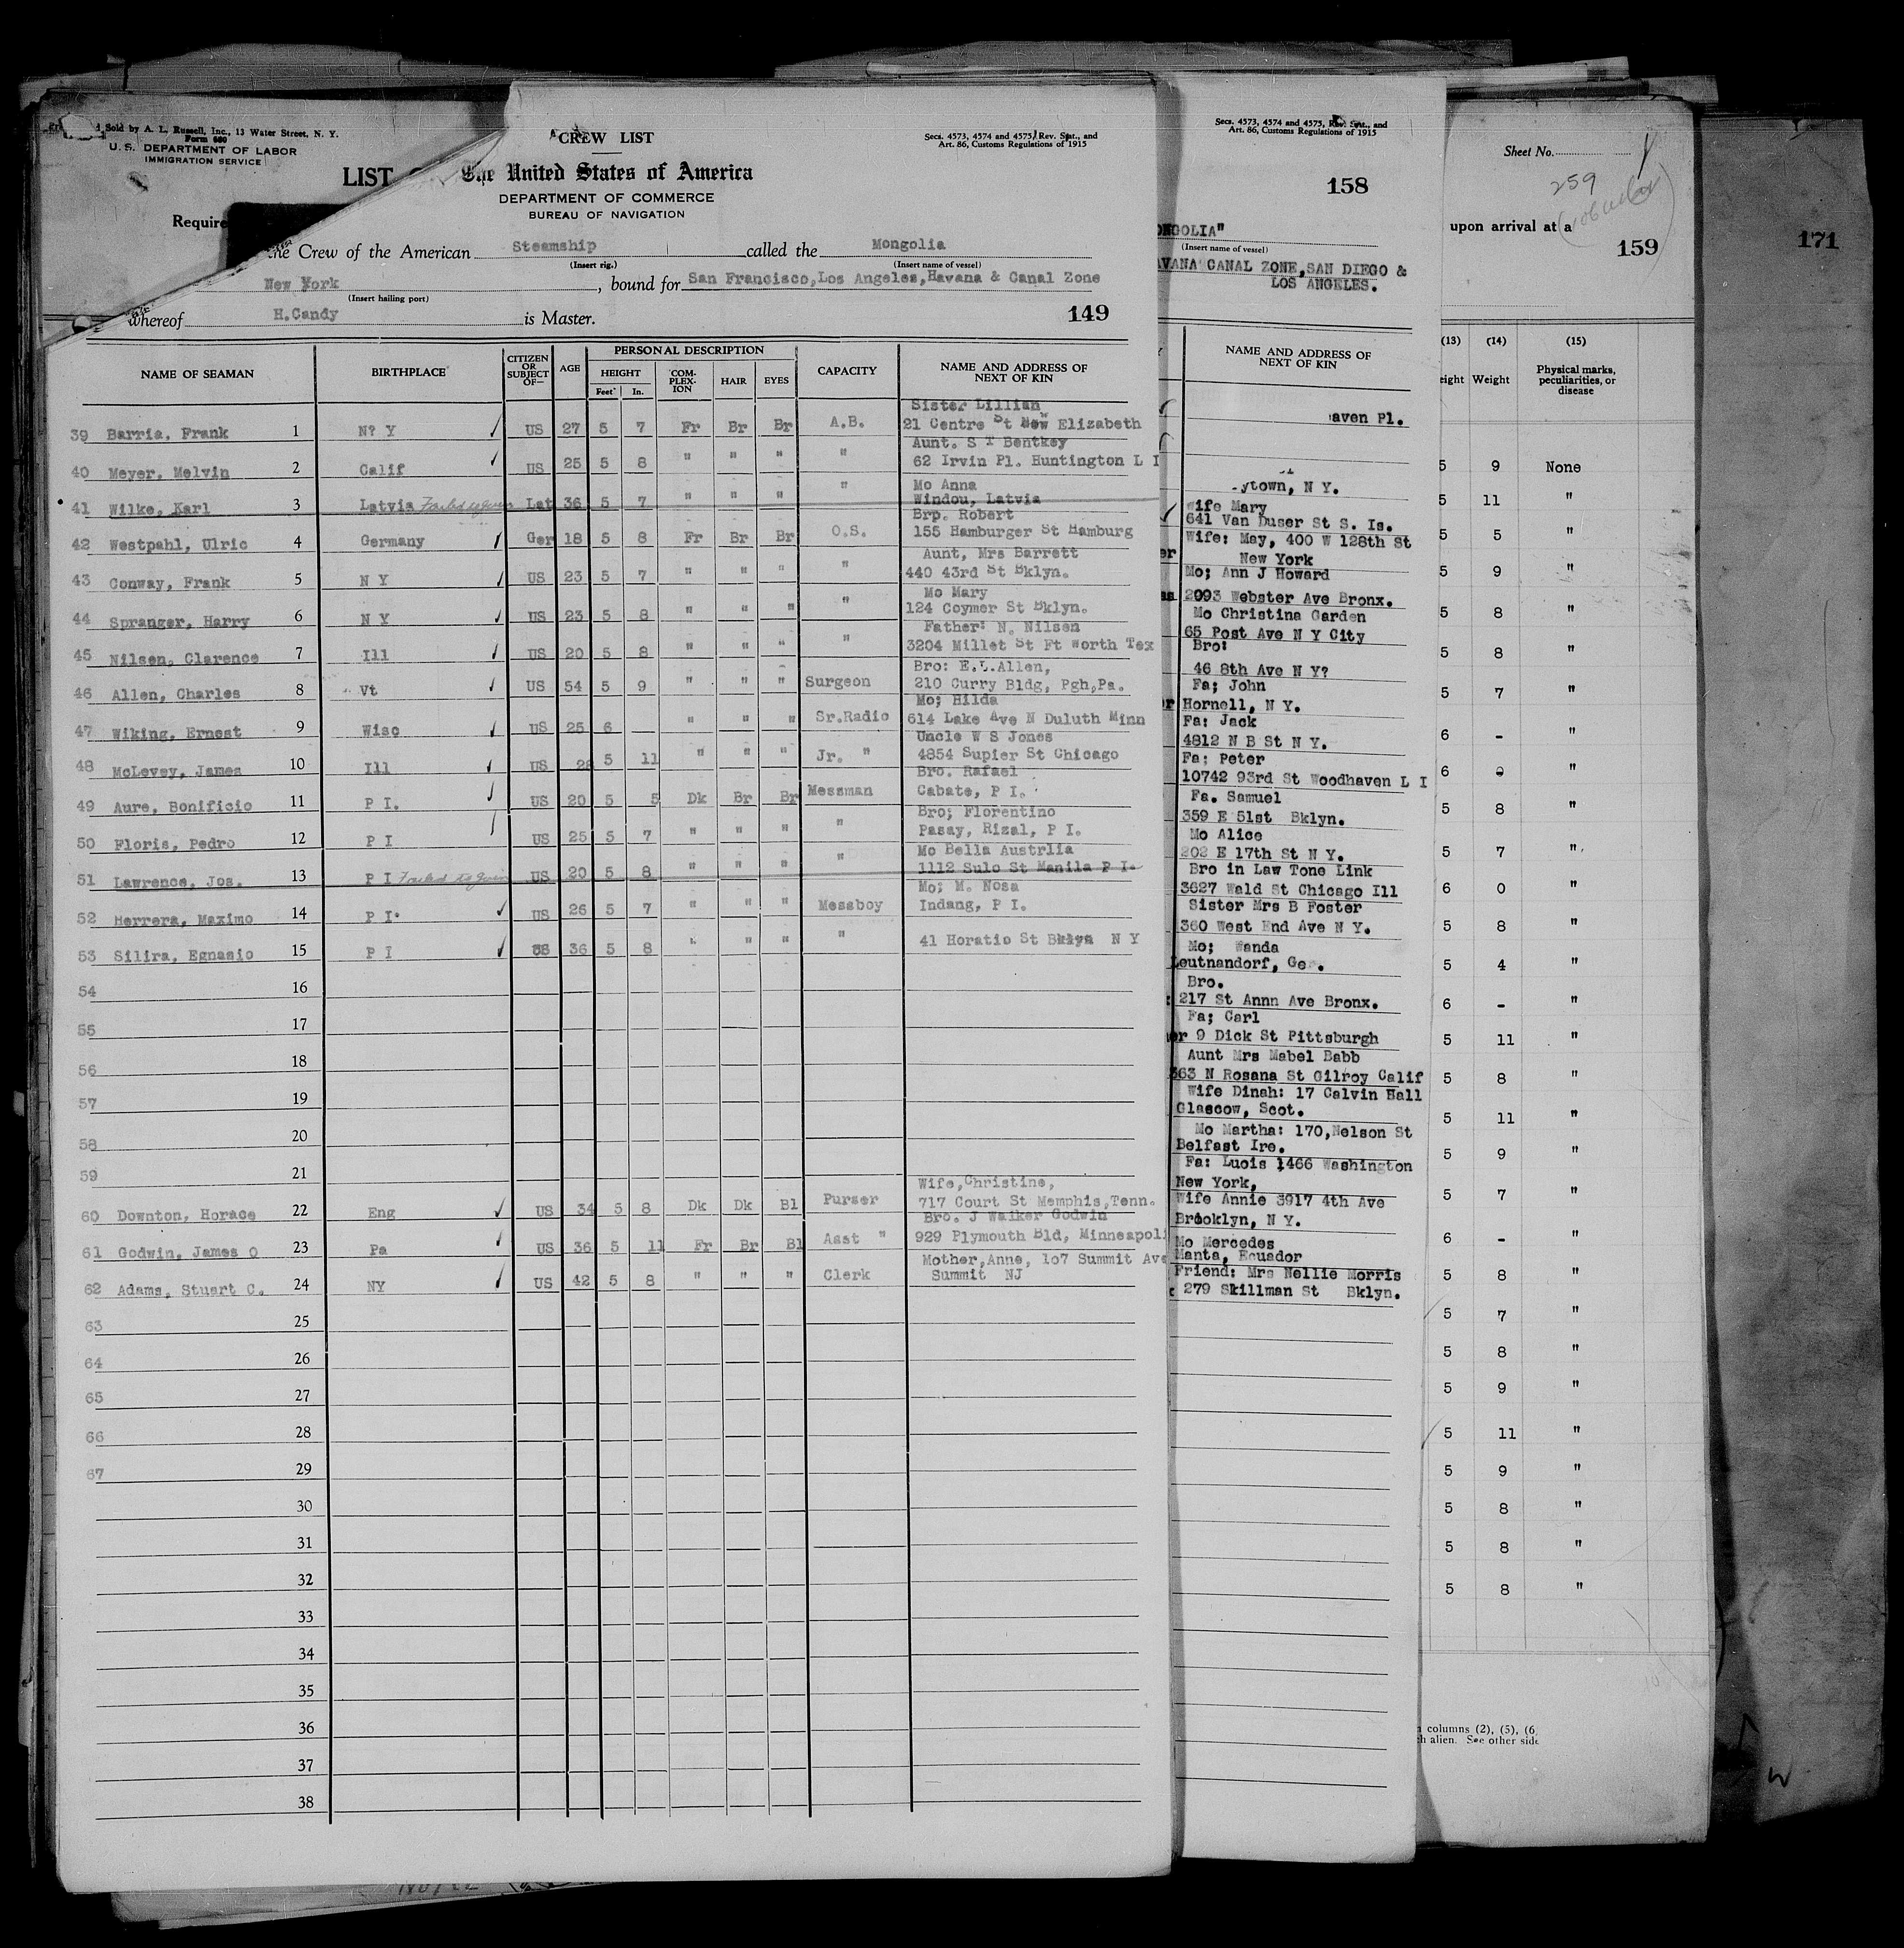 Sold by A. L. Russell, Inc., 13 Water Street, N. Y.
Form 680
U. S. DEPARTMENT OF LABOR
IMMIGRATION SERVICE
LIST
Require
CREW LIST
Secs. 4573, 4574 and 4575, Rev. Stat., and
Art. 86, Customs Regulations of 1915
The United States of America
DEPARTMENT OF COMMERCE
BUREAU OF NAVIGATION
the Crew of the American Steamship called the Mongolia
(Insert rig.) (Insert name of vessel)
New York, bound for San Francisco,Los Angeles,Havana & Canal Zone
(Insert hailing port)
whereof H.Candy is Master. 149
NAME OF SEAMAN BIRTHPLACE CITIZEN OR SUBJECT OF— AGE PERSONAL DESCRIPTION CAPACITY NAME AND ADDRESS OF NEXT OF KIN
HEIGHT COM-PLEX-ION HAIR EYES
Feet In.
Sister Lillian
39 Barria, Frank 1 N? Y US 27 5 7 Fr Br Br A.B. 21 Centre St New Elizabeth
Aunt. S T Bentkey
40 Meyer, Melvin 2 Calif US 25 5 8 " " " " 62 Irvin Pl. Huntington L I
Mo Anna
41 Wilke, Karl 3 Latvia Failed to join Lat 36 5 7 " " " " Windou, Latvia
Brp. Robert
42 Westpahl, Ulric 4 Germany Ger 18 5 8 Fr Br Br O.S. 155 Hamburger St Hamburg
Aunt, Mrs Barrett
43 Conway, Frank 5 N Y US 23 5 7 " " " " 440 43rd St Bklyn.
Mo Mary
44 Spranger, Harry 6 N Y US 23 5 8 " " " " 124 Coymer St Bklyn.
Father: N. Nilsen
45 Nilsen, Clarence 7 Ill US 20 5 8 " " " " 3204 Millet St Ft Worth Tex
Bro: E.L.Allen,
46 Allen, Charles 8 Vt US 54 5 9 " " " Surgeon 210 Curry Bldg, Pgh,Pa.
Mo; Hilda
47 Wiking, Ernest 9 Wisc US 25 6 " " " Sr.Radio 614 Lake Ave N Duluth Minn
Uncle W S Jones
48 McLevey, James 10 Ill US 28 5 11 " " " Jr. " 4854 Supier St Chicago
Bro. Rafael
49 Aure, Bonificio 11 P I. US 20 5 5 Dk Br Br Messman Cabate, P I.
Bro; Florentino
50 Floris, Pedro 12 P I US 25 5 7 " " " " Pasay, Rizal, P I.
Mo Bella Austrlia
51 Lawrence, Jos. 13 P I Failed to join US 20 5 8 " " " " 1112 Sulo St Manila P I.
Mo; M. Nosa
52 Herrera, Maximo 14 P I. US 26 5 7 " " " Messboy Indang, P I.
53 Silira, Egnasio 15 P I US 36 5 8 " " " " 41 Horatio St Bklyn N Y
54 16
55 17
56 18
57 19
58 20
59 21
Wife,Christine,
60 Downton, Horace 22 Eng US 34 5 8 Dk Dk Bl Purser 717 Court St Memphis,Tenn.
Bro. J Walker Godwin
61 Godwin, James O 23 Pa US 36 5 11 Fr Br Bl Asst " 929 Plymouth Bld, Minneapoli
Mother,Anne, 1o7 Summit Ave
62 Adams, Stuart C. 24 NY US 42 5 8 " " " Clerk Summit NJ
63 25
64 26
65 27
66 28
67 29
30
31
32
33
34
35
36
37
38
Secs. 4573, 4574 and 4575, Rev. Stat., and
Art. 86, Customs Regulations of 1915
158
ONGOLIA"
(Insert name of vessel)
AVANA CANAL ZONE,SAN DIEGO &
LOS ANGELES.
NAME AND ADDRESS OF
NEXT OF KIN
aven Pl.
ytown, N Y.
Wife Mary
641 Van Duser St S. Is.
Wife: May, 400 W 128th St
New York
Mo; Ann J Howard
2093 Webster Ave Bronx.
Mo Christina Garden
65 Post Ave N Y City
Bro:
46 8th Ave N Y?
Fa; John
Hornell, N Y.
Fa: Jack
4812 N B St N Y.
Fa; Peter
10742 93rd St Woodhaven L I
Fa. Samuel
359 E 51st Bklyn.
Mo Alice
202 E 17th St N Y.
Bro in Law Tone Link
3627 Wald St Chicago Ill
Sister Mrs B Foster
360 West End Ave N Y.
Mo; Wanda
Leutnandorf, Ge .
Bro.
217 St Annn Ave Bronx.
Fa; Carl
9 Dick St Pittsburgh
Aunt Mrs Mabel Babb
363 N Rosana St Gilroy Calif
Wife Dinah: 17 Calvin Hall
Glascow, Scot.
Mo Martha: 170,Nelson St
Belfast Ire.
Fa: Luois 1466 Washington
New York,
Wife Annie 3917 4th Ave
Brooklyn, N Y.
Mo Mercedes
Manta, Ecuador
Friend: Mrs Nellie Morris
279 Skillman St Bklyn.
Sheet No.
259
upon arrival at a
159
(13) (14) (15)
eight Weight Physical marks, peculiarities, or disease
5 9 None
5 11 "
5 5 "
5 9 "
5 8 "
5 8 "
5 7 "
6 - "
6 0 "
5 8 "
5 7 "
6 0 "
5 8 "
5 4 "
6 - "
5 11 "
5 8 "
5 11 "
5 9 "
5 7 "
6 - "
5 8 "
5 7 "
5 8 "
5 9 "
5 11 "
5 9 "
5 8 "
5 8 "
5 8 "
columns (2), (5), (6
h alien. See other side
171
W